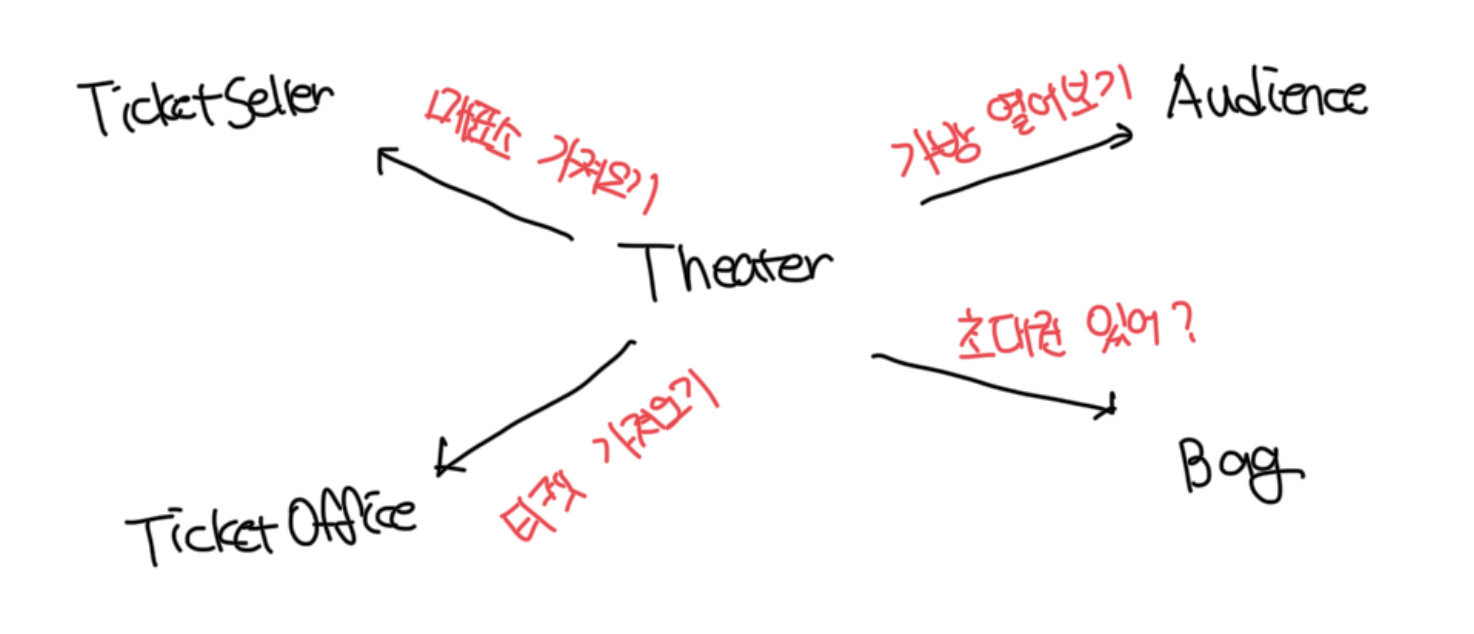 TicketSeller
매표소 가져오기
가방 열어보기
Audience
Theater
초대권 있어?
티켓 가져오기
Bag
TicketOffice